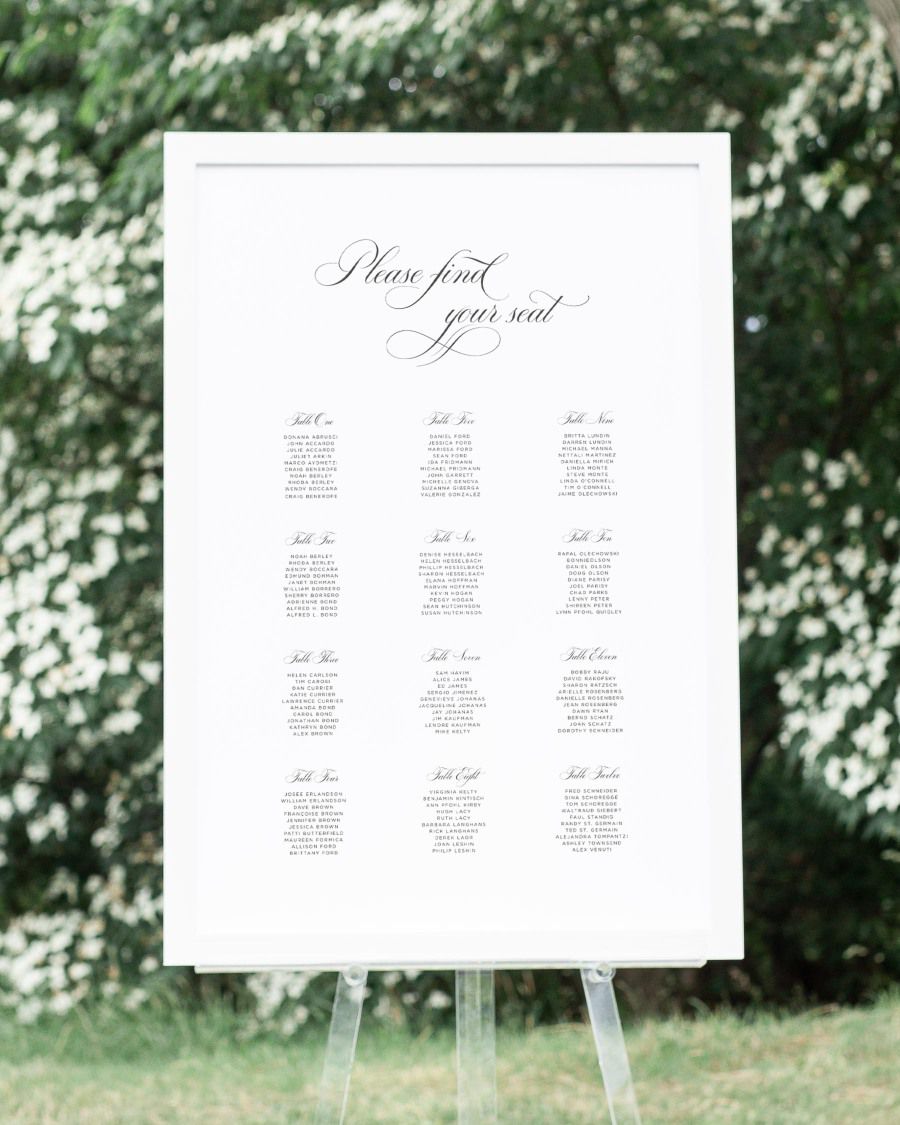 Please find
your seat
Table One
DONANA ABRUSCI
JOHN ACCARDO
JULIE ACCARDO
JULIET ARKIN
MARCO AYDMETZI
CRAIG BENEROFE
NOAH BERLEY
RHODA BERLEY
WENDY BOCCARA
CRAIG BENEROFE
Table Two
NOAH BERLEY
RHODA BERLEY
WENDY BOCCARA
EDMUND BOHMAN
JANET BOHMAN
WILLIAM BORRERO
SHERRY BORRERO
ADRIENNE BOND
ALFRED H. BOND
ALFRED L. BOND
Table Three
HELEN CARLSON
TIM CAROSI
DAN CURRIER
KATIE CURRIER
LAWRENCE CURRIER
AMANDA BOND
CAROL BOND
JONATHAN BOND
KATHRYN BOND
ALEX BROWN
Table Four
JOSÉE ERLANDSON
WILLIAM ERLANDSON
DAVE BROWN
FRANÇOISE BROWN
JENNIFER BROWN
JESSICA BROWN
PATTI BUTTERFIELD
MAUREEN FORMICA
ALLISON FORD
BRITTANY FORD
Table Five
DANIEL FORD
JESSICA FORD
MARISSA FORD
SEAN FORD
IDA FRIDMANN
MICHAEL FRIDMANN
JOHN GARRETT
MICHELLE GENOVA
SUZANNA GIBERGA
VALERIE GONZALEZ
Table Six
DENISE HESSELBACH
HELEN HESSELBACH
PHILLIP HESSELBACH
SHARON HESSELBACH
ELANA HOFFMAN
MARVIN HOFFMAN
KEVIN HOGAN
PEGGY HOGAN
SEAN HUTCHINSON
SUSAN HUTCHINSON
Table Seven
SAM HAYIM
ALICE JAMES
ED JAMES
SERGIO JIMENEZ
GENEVIEVE JOHANAS
JACQUELINE JOHANAS
JAY JOHANAS
JIM KAUFMAN
LENORE KAUFMAN
MIKE KELTY
Table Eight
VIRGINIA KELTY
BENJAMIN KINTISCH
ANN PFOHL KIRBY
HUGH LACY
RUTH LACY
BARBARA LANGHANS
RICK LANGHANS
DEREK LAOR
JOAN LESHIN
PHILIP LESHIN
Table Nine
BRITTA LUNDIN
DARREN LUNDIN
MICHAEL MANNA
NETTALI MARTINEZ
DANIELLA MIRICH
LINDA MONTE
STEVE MONTE
LINDA O'CONNELL
TIM O'CONNELL
JAIME OLECHOWSKI
Table Ten
RAFAL OLECHOWSKI
BONNIEOLSON
DANIEL OLSON
DOUG OLSON
DIANE PARISY
JOEL PARISY
CHAD PARKS
LENNY PETER
SHIREEN PETER
LYNN PFOHL QUIGLEY
Table Eleven
BOBBY RAJU
DAVID RAKOFSKY
SHARON RATZSCH
ARIELLE ROSENBERG
DANIELLE ROSENBERG
JEAN ROSENBERG
DAWN RYAN
BERND SCHATZ
JOAN SCHATZ
DOROTHY SCHNEIDER
Table Twelve
FRED SCHNEIDER
GINA SCHOREGGE
TOM SCHOREGGE
WALTRAUD SIEBERT
PAUL STANDIG
RANDY ST. GERMAIN
TED ST. GERMAIN
ALEJANDRA TOMPANTZI
ASHLEY TOWNSEND
ALEX VENUTI